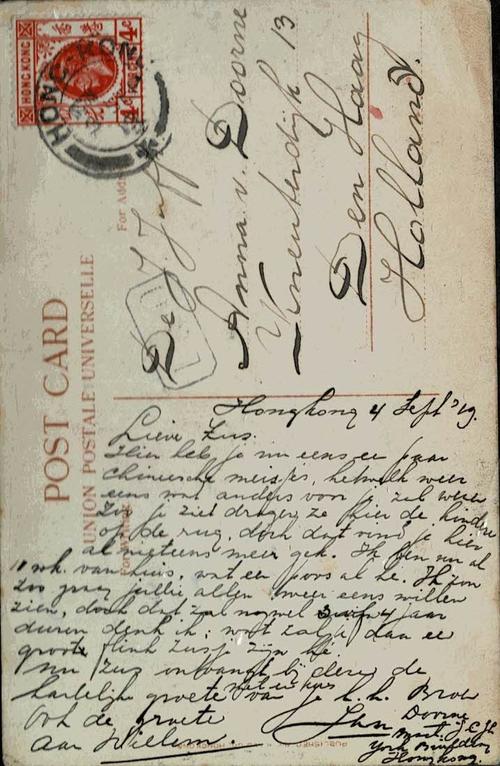 HONG KONG
4c
HONG KONG
POST CARD
UNION POSTALE UNIVERSELLE
De J. Juff
Anna v. Doorne
13
Den Haag
Holland.
Hongkong 4 Sept '19.
Lieve Zus.
Hier heb je nu eens ee paar
chineesche meisjes, hetwelk weer
eens wat anders voor je zal wezen
Zoo je ziet dragen ze hier de kinders
op de rug, doch dat vind je hier
al niet eens meer gek. Ik ben nu al
van huis, wat een poos al he. Ik zou
zoo graag jullie allen weer eens willen
zien, doch dat zal nog wel 3 a 4 jaar
duren denk ik; wat zal je dan ee
groote flink zusje zijn he.
Nu Zus ontvangt bij deze de
hartelijk groete van je l.h. Broer
Ook de groete
aan Willem.
Jan Doorne
York Building
Hongkong.